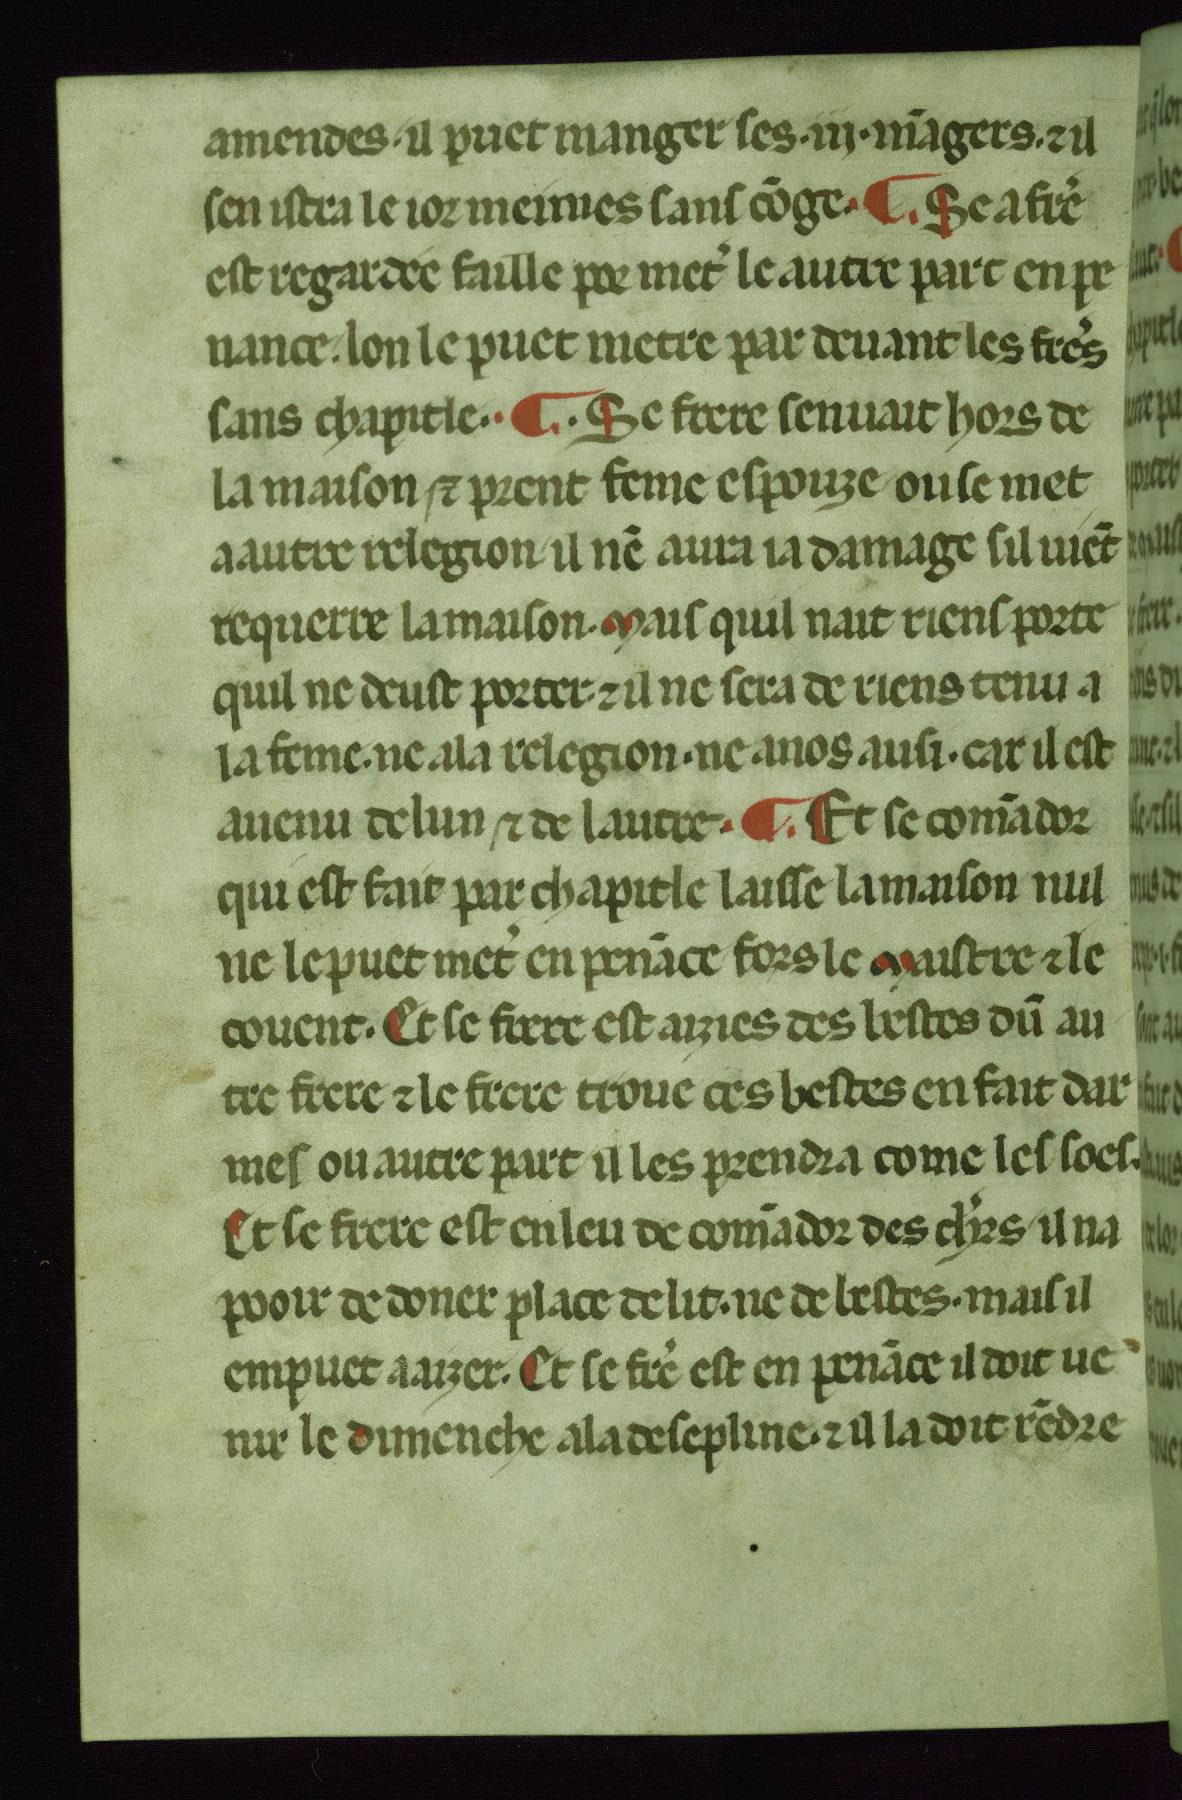 amendes · il puet manger ses · iij · māgers · ⁊ il
sen istra le ior meimes sans cōge · ¶ · Se a fre᷒
est regardee faille por met᷒ le autre part en pe
nance · lon le puet metre par deuant les fre᷒s
sans chapitle · ¶ · Se frere senuait hors de
la maison / ⁊ prent feme espouze ou se met
a autre relegion / il nē aura ia damage sil uiēt
requerre la maison · Mais quil nait riens porte
quil ne deust porter · ⁊ il ne sera de riens tenu a
la feme · ne a la relegion · ne a nos ausi · car il est
auenu de lun / ⁊ de lautre · ¶ · Et se comādor
qui est fait par chapitle laisse la maison nul
ne le puet met᷒ en penāce fors le Maistre ⁊ le
couent · Et se frere est aizies des bestes dū au
tre frere ⁊ le frere troue ces bestes en fait dar
mes ou autre part il les prendra come les soes ·
Et se frere est en leu de comādor des ch᷒rs / il na
pooir de doner place de lit · ne de bestes · mais il
em puet aaizer · Et se fre᷒ est en penāce il doit ue
nir le dimenche a la desepline · ⁊ il la doit rēdre